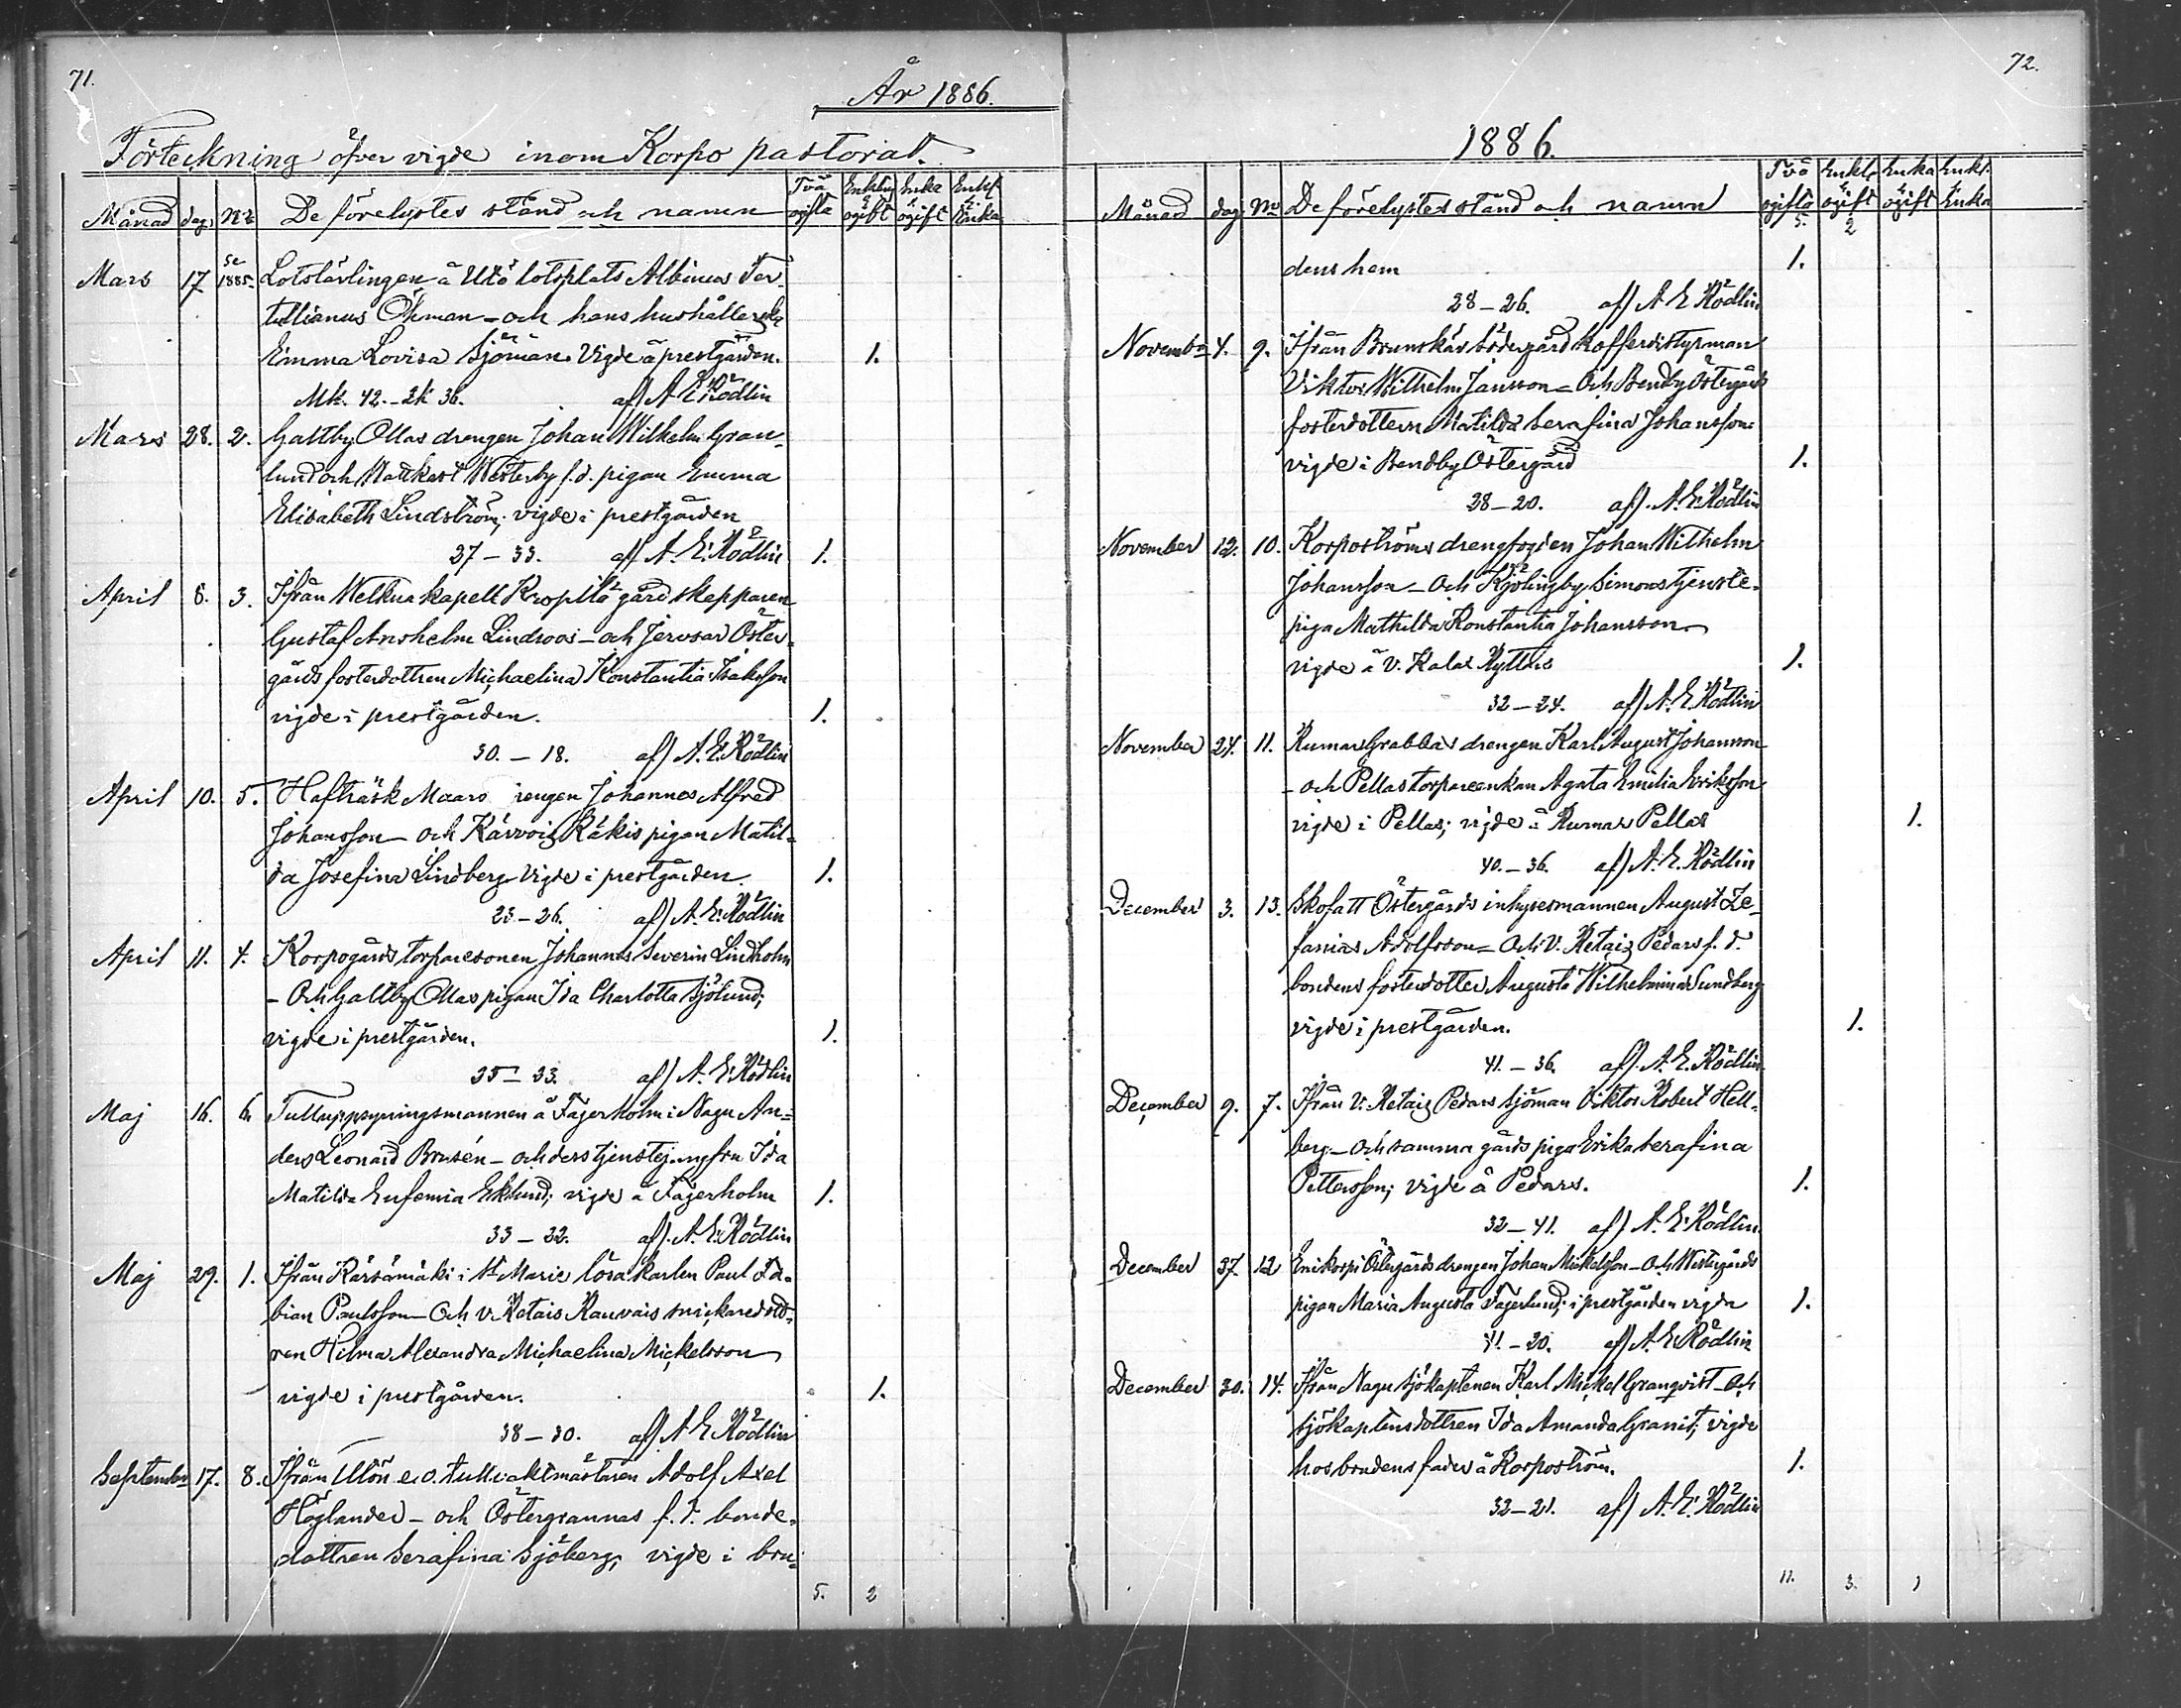 71.
År 1886.
Förteckning öfver vigde inom Korpo pastorat.
Månad dag No De förelystes stånd och namn Två ogifta Enkling o. ogift Enka o. ogift Enkl. o. Enka
Mars 17 se 1885. Lotslärlingen å Utö lotsplats Albinus Ter-
tullianus Öhman - och hans hushållerska
Emma Lovisa Sjöman. Vigde å prestgården. 1.
Mk. 42.- 2k 36. af) A. E. Rödlin
Mars 28. 2. Galtby Ollas drengen Johan Wilhelm Gran-
lund och Wattkast Westerby f.d. pigan Emma
Elisabeth Lindström; vigde i prestgården
37 - 33. af) A. E. Rödlin 1.
April 8. 3. Ifrån Welkua kapell Kropila gård skepparen
Gustaf Anshelm Lindroos - och Jervsar Öster-
gårds fosterdottren Michaelina Konstantia Isaksson
vigde i prestgården. 1.
30. - 18. af) A. E. Rödlin
April 10. 5. Hafträsk Maars drengen Johannes Alfred
Johansson - och Kärvois Räkis pigan Matil-
da Josefina Lindberg. Vigde i prestgården. 1.
23 - 26. af) A. E. Rödlin
April 11. 4. Korpogårds torparesonen Johannes Severin Lindholm
- Och Galtby Ollas pigan Ida Charlotta Sjölund;
vigde i prestgården. 1.
35 - 33. af) A. E. Rödlin
Maj 16. 6. Tulluppsyningsmannen å Fagerholm i Nagu An-
ders Leonard Brusén - och ders tjenstejungfru Ida
Matilda Eufemia Eklund; vigde å Fagerholm 1.
33 - 22. af). A. E. Rödlin
Maj 29. 1. Ifrån Räsämäki i St Marie lösa karlen Paul Fa-
bian Paulsson - Och V. Retais Rauvais snickaredott-
ren Hilma Alexandra Michaelina Mickelsson
vigde i prestgården. 1.
38 - 30. af). A. E. Rödlin
September 17. 8. Ifrån Utön e.o. tullvaktmästaren Adolf Axel
Höglander - och Östergrannas f.d. bonde-
dottren Serafina Sjöberg, vigde i bru-
5. 2
72.
1886.
Månad dag No De förelystes stånd och namn Två ogifta Enkl. o. ogift Enka o. ogift Enkl. o. Enka
5. 2
dens hem 1.
28 - 26. af) A. E. Rödlin
November 4. 9. Ifrån Brunskär Södergård kofferdistyrman
Viktor Wilhelm Jansson - Och Bendby Östergårds
fosterdottern Matilda Serafina Johansson
vigde i Bendby Östergård 1.
28 - 20. af). A. E. Rödlin
November 12. 10. Korpoströms drengfogden Johan Wilhelm
Johansson - Och Kjölingby Simons tjenste-
piga Mathilda Konstantia Johansson
vigde å V. Kalax Ryttars 1.
32 - 24. af) A. E. Rödlin
November 24. 11. Rumar Grabbas drengen Karl August Johansson
- och Pellas torpareenkan Agata Emilia Eriksson
vigde i Pellas; vigde å Rumar Pellas 1.
40. - 36. af) A. E. Rödlin
December 3. 13. Skofatt Östergårds inhysesmannen August Ze-
fanias Adolfsson - Och V. Retais Pedars f.d.
bondens fosterdotter Augusta Wilhelmina Sundberg
vigde i prestgården. 1.
41. - 36. af). A. E. Rödlin.
December 9. 7. Ifrån V. Retais Pedars Sjöman Viktor Robert Hell-
berg - Och samma gårds piga Erika Serafina
Pettersson; vigde å Pedars. 1.
32 - 41. af). A. E. Rödlin.
December 27. 12 Enikorpi Östergårds drengen Johan Mickelsson - Och Westergårds
pigan Maria Augusta Fagerlund; i prestgården vigda 1.
41. - 20. af) A. E. Rödlin
December 30. 14. Ifrån Nagu Sjökaptenen Karl Mickel Granqvist - Och
sjökaptensdottren Ida Amanda Granit; vigde
hos brudens fader å Korpoström. 1.
32 - 21. af) A. E. Rödlin
11. 3. 1